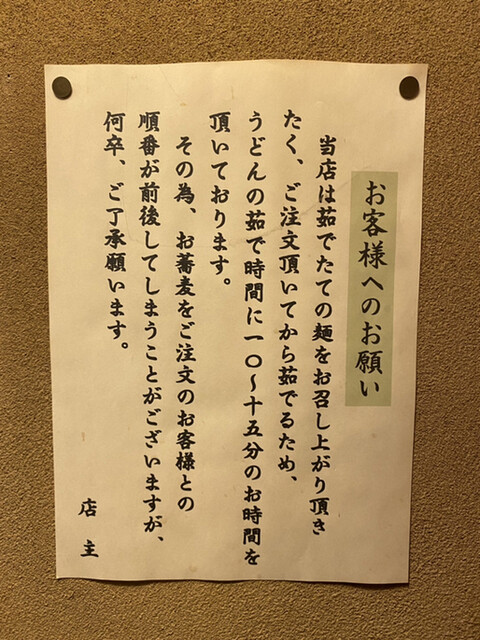 お客様へのお願い
当店は茹でたての麺をお召し上がり頂き
たく、ご注文頂いてから茹でるため、
うどんの茹で時間に一〇～十五分のお時間を
頂いております。
その為、お蕎麦をご注文のお客様との
順番が前後してしまうことがございますが、
何卒、ご了承願います。
店主